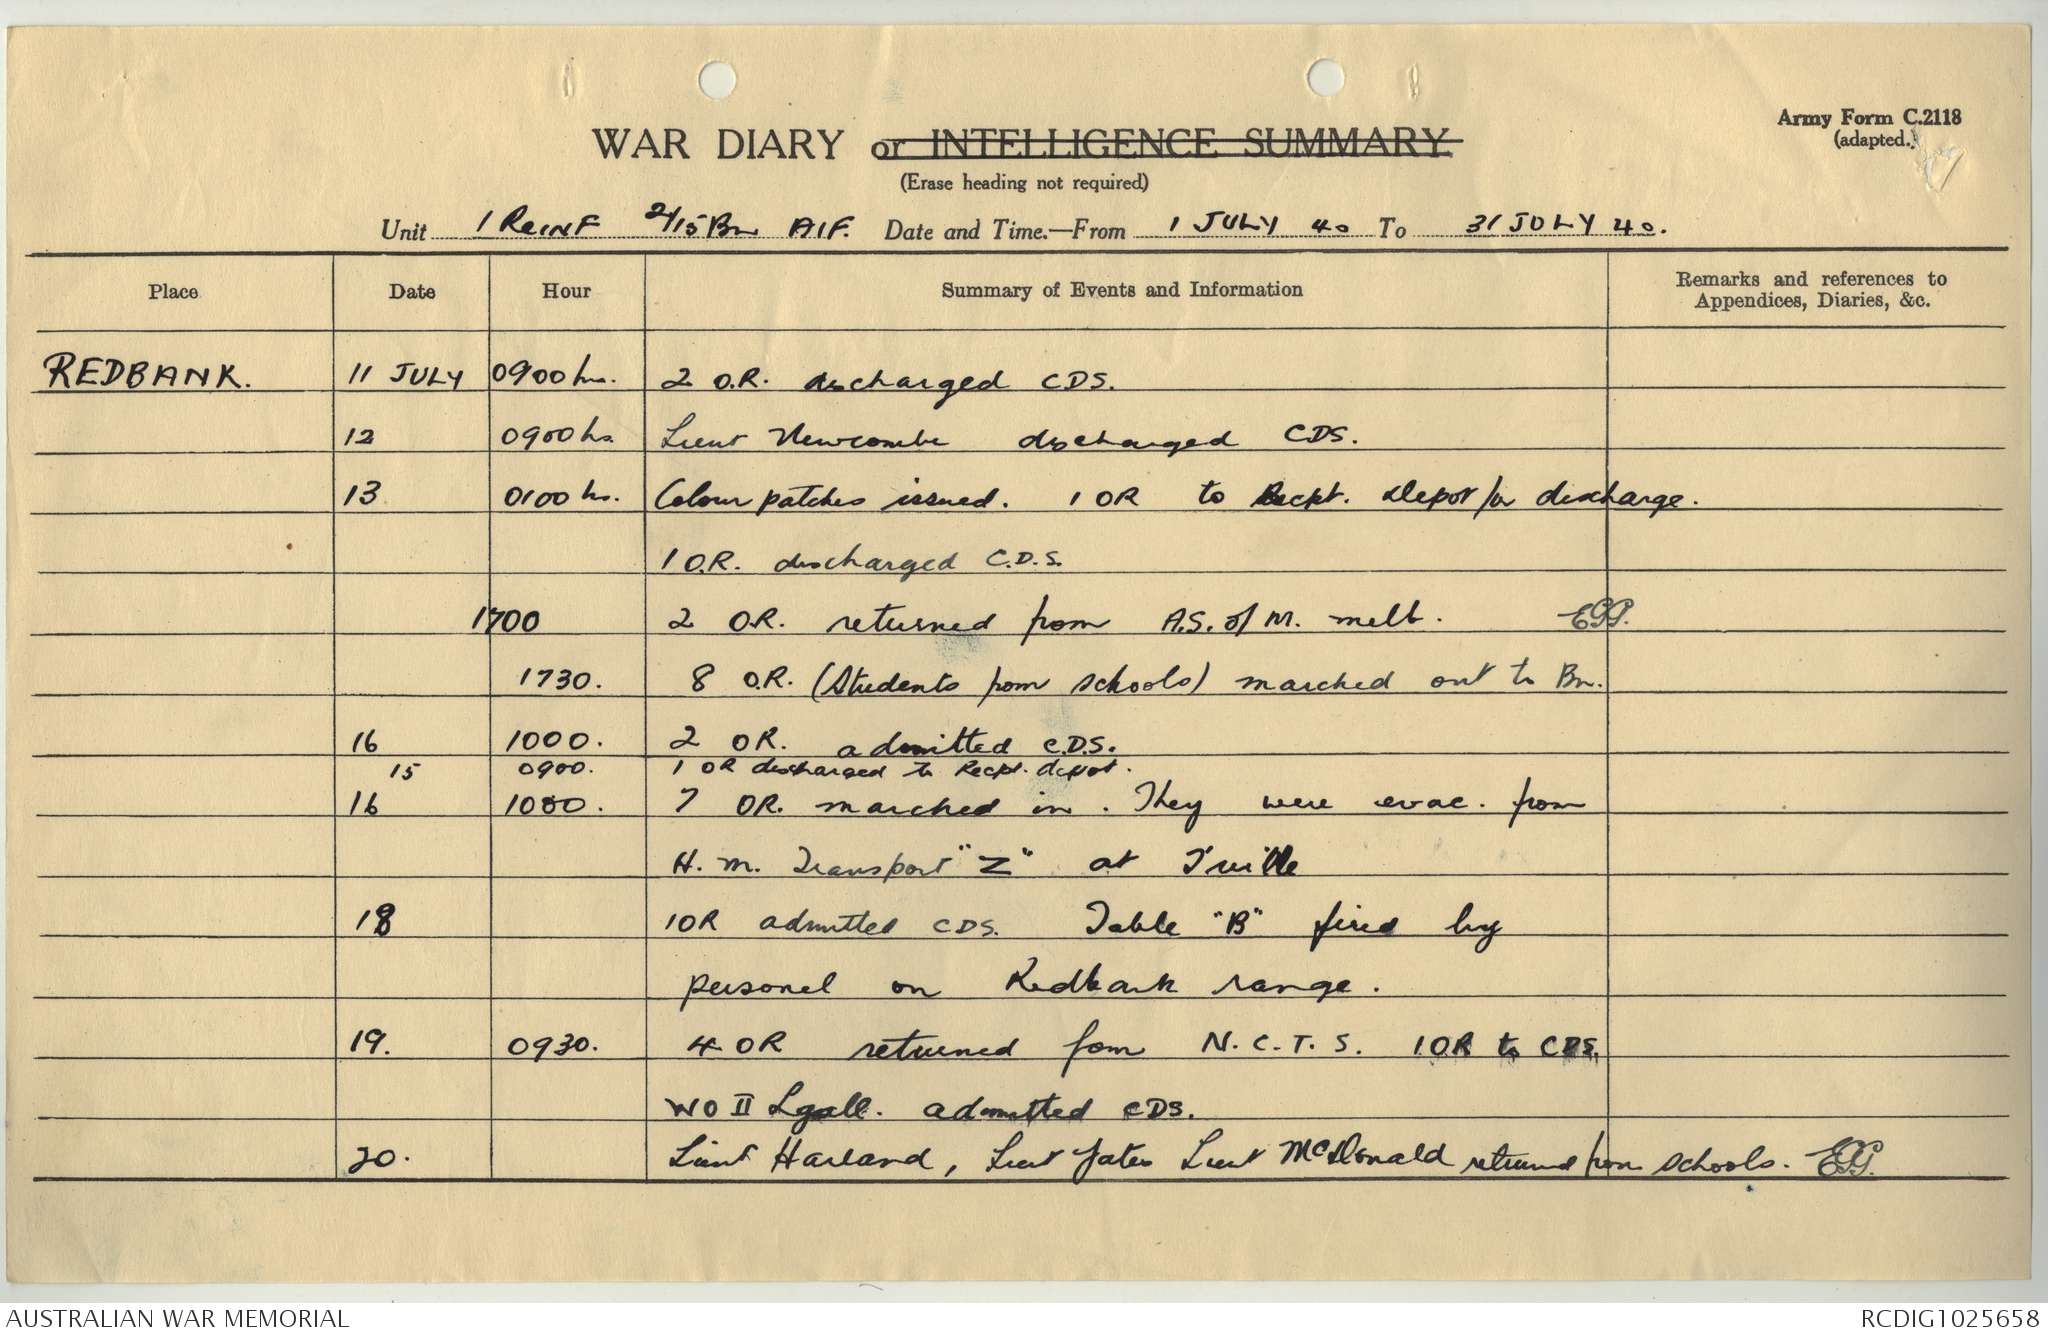 Army Form C.2118
(adapted.)
WAR DIARY or INTELLIGENCE SUMMARY
(Erase heading not required)
Unit 1 ReINF 2/15 Bn AIF. Date and Time.—From 1 JULY 40 To 31 JULY 40.
Place Date Hour Summary of Events and Information Remarks and references to Appendices, Diaries, &c.
REDBANK. 11 JULY 0900 hrs. 2 O.R. discharged CDS.
12 0900 hrs. Lieut Newcombe discharged CDS.
13 0100 hrs. Colour patches issued. 1 OR to Recpt. Depot for discharge.
1 O.R. discharged C.D.S.
1700 2 O.R. returned from A.S. of M. melb. EGG.
1730. 8 O.R. (Students from schools) marched out to Bn.
16 1000. 2 OR. admitted C.D.S.
15 0900. 1 OR discharged to Recpt. depot.
16 1000. 7 OR. marched in. They were evac. from
H.M. Transport "Z" at T'ville
18 1 OR admitted CDS. Table "B" fired by
personel on Redbank range.
19. 0930. 4 OR returned from N.C.T.S. 1 OR to CDS.
WO II Lyall. admitted CDS.
20. Lieut Harland, Lieut Yates Lieut McDonald returned from schools. EGG.
AUSTRALIAN WAR MEMORIAL RCDIG1025658